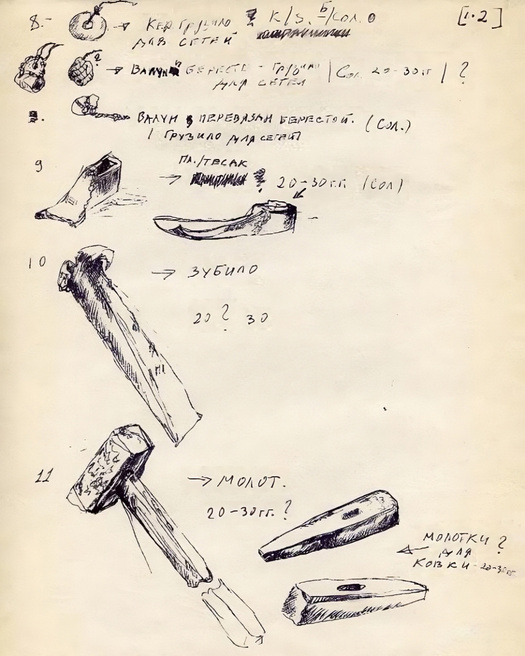 8.- → КЕР. ГРУЗИЛО ? К/З. Б/СОЛ. О [1·2]
ДЛЯ СЕТЕЙ
2 → ВАЛУН БЕРЕСТЬ - ГРУЗИЛО | СОЛ 20-30 гг | ?
ДЛЯ СЕТЕЙ
ВАЛУН ПЕРЕВЯЗАН БЕРЕСТОЙ. (СОЛ.)
| ГРУЗИЛО ДЛЯ СЕТЕЙ|
9 ПЛ./ТЕСАК
→ ? 20-30 г.г. (СОЛ)
10 → ЗУБИЛО
20 ? 30
11 → МОЛОТ.
20-30 гг. ?
МОЛОТКИ ?
ДЛЯ
КОВКИ - 20-30 гг